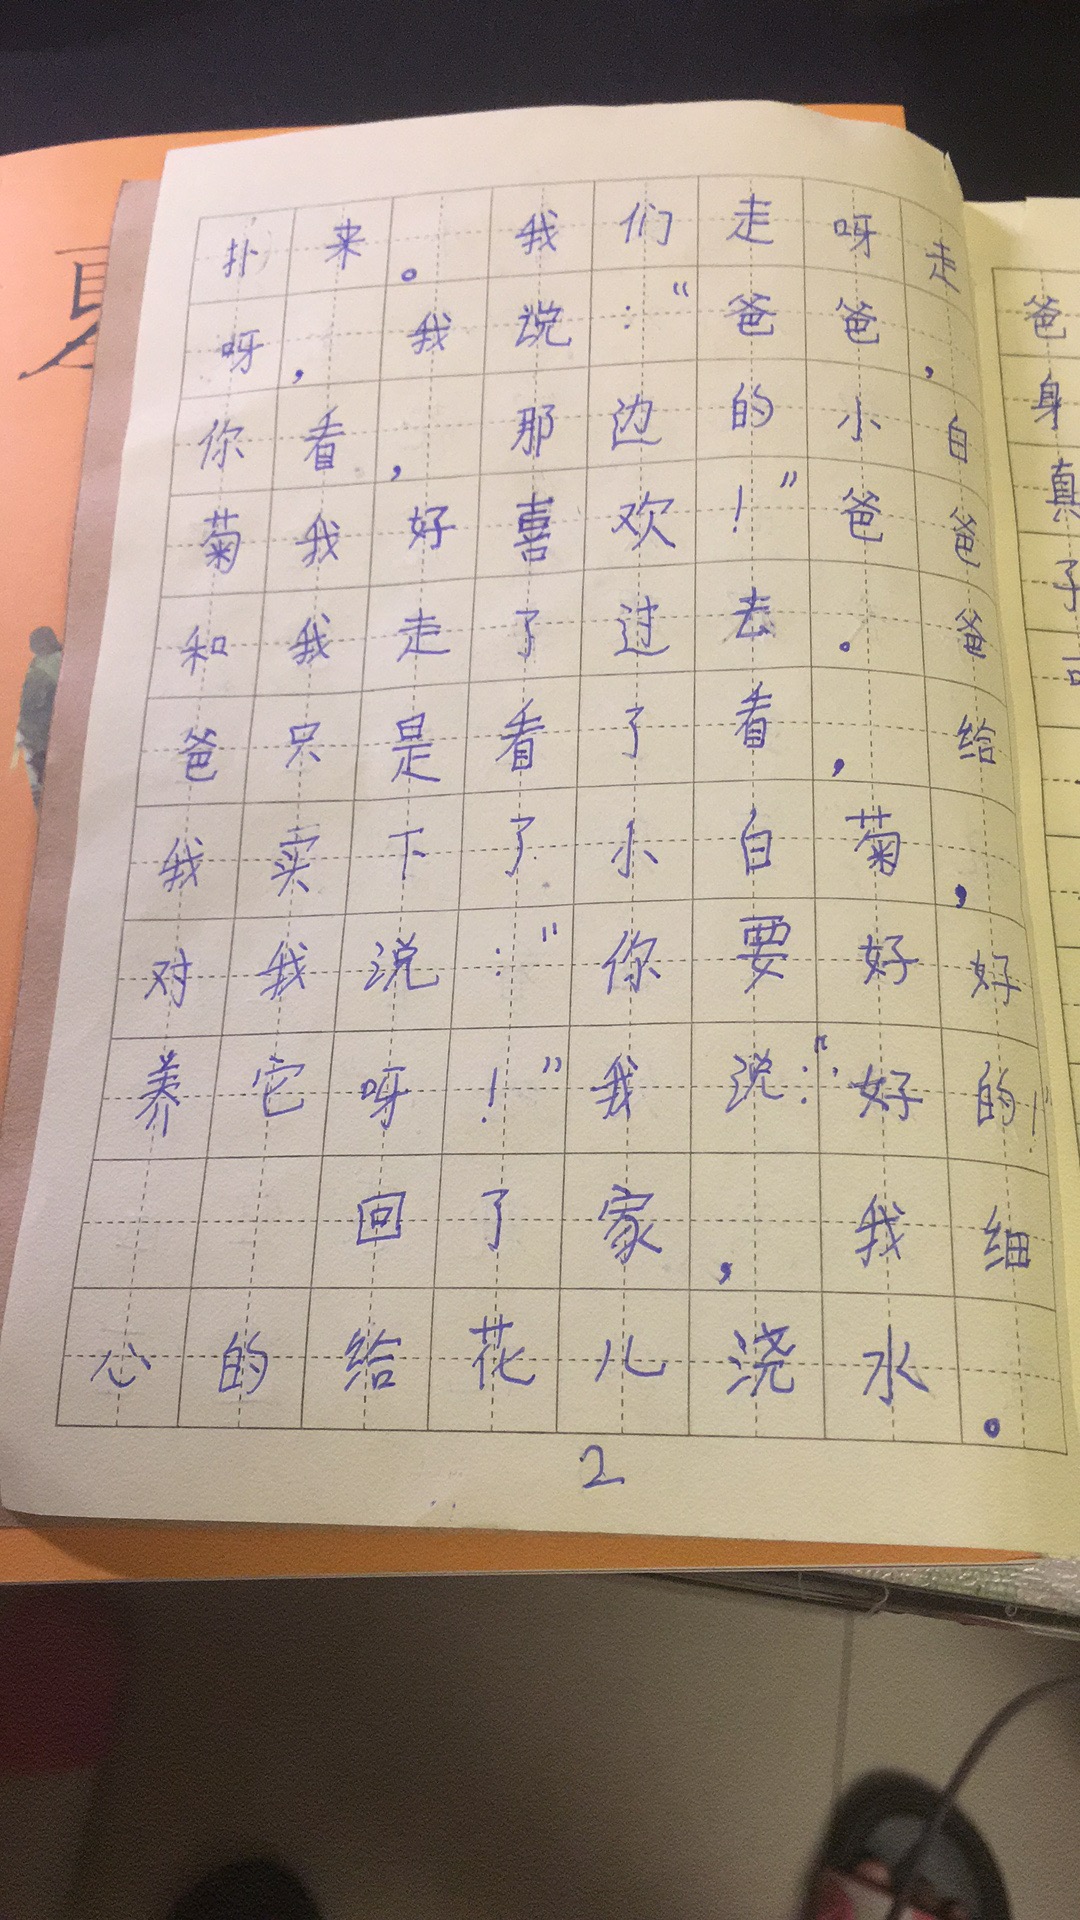 扑来。我们走呀走
呀，我说：“爸爸，
你看，那边的小白
菊我好喜欢！”爸爸
和我走了过去。爸
爸只是看了看，给
我卖下了小白菊，
对我说：“你要好好
养它呀！”我说：“好的！
回了家，我细
心的给花儿浇水。
2
爸
身
真
子